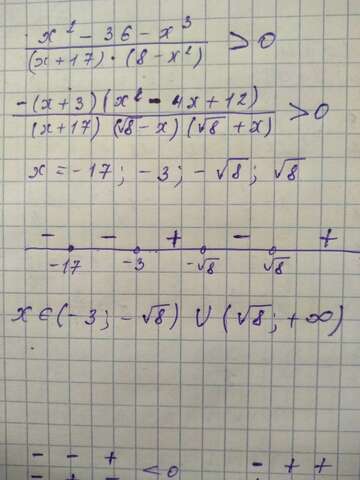 x² - 36 - x³ / (x+17) · (8 - x²) > 0
-(x+3)(x² - 4x + 12) / (x+17)(√8 - x)(√8 + x) > 0
x = -17; -3; -√8; √8
- - + - +
-17 -3 -√8 √8
x ∈ (-3; -√8) ∪ (√8; +∞)
- - + < 0 - + +
- + -